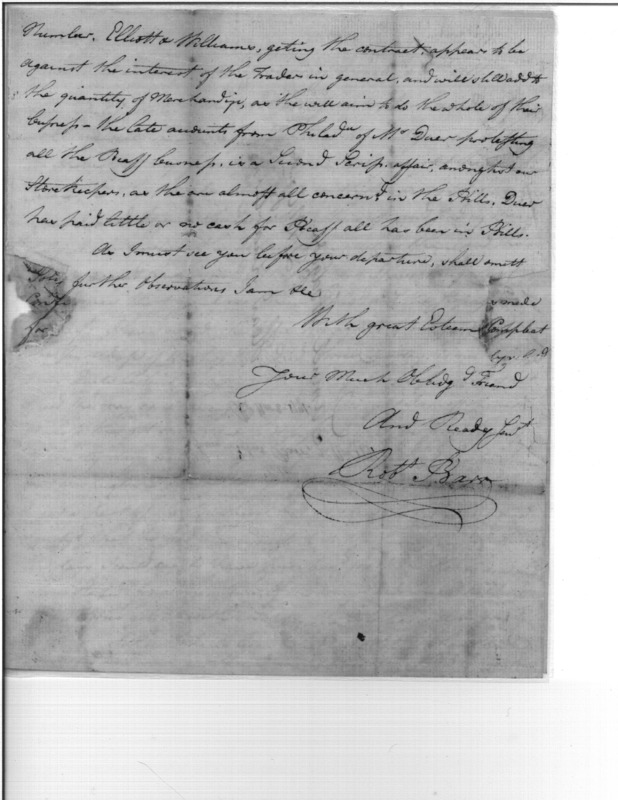 Number. Elliott & Williams, geting the contract, appear to be
against the interest of the Trader in general, and will still add to
the quantity of Merchandize, as the will aim to do the whole of their
business - the late accounts from Philada of Mr Duer protesting
all the Beaff business, is a Second affair, amonghst our
Storekeepers, as the are almost all concernd in the Bills, Duer
has paid little or no cash for Beaff all has been in Bills.
As I must see you before your departure, shall omitt
further Observations I am &c
With great Esteem
Your Much Obbidgd Friend
And Ready Servt
Robt Barr
made
Compleat
for